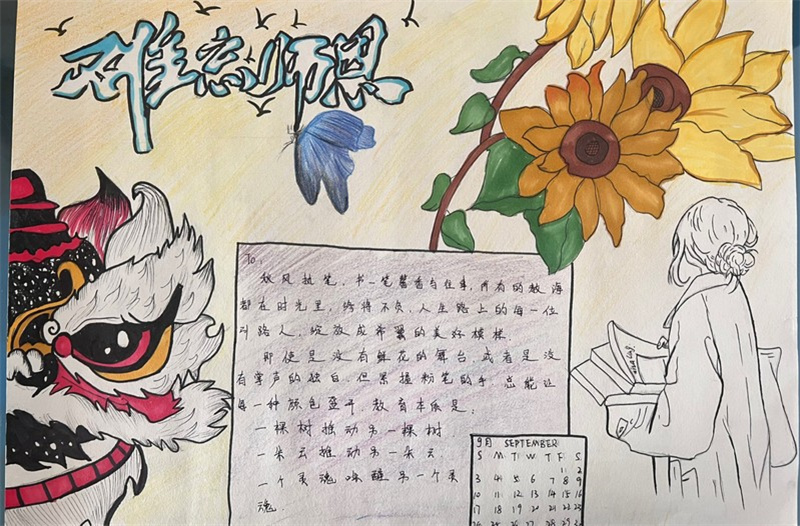 难忘师恩
To:
秋风执笔，书一笔馨香与往事，所有的教诲
都在时光里，终将不负，人生路上的每一位
引路人，绽放成希冀的美好模样。
即使是没有鲜花的舞台，或者是没
有掌声的独白，但紧握粉笔的手，总能让
每一种颜色盛开，教育本质是：
一棵树推动另一棵树，
一朵云推动另一朵云，
一个灵魂唤醒另一个灵
魂．
9月 SEPTEMBER
S M T W T F S
1 2
3 4 5 6 7 8 9
10 11 12 13 14 15 16
17 18 19 20 21 22 23